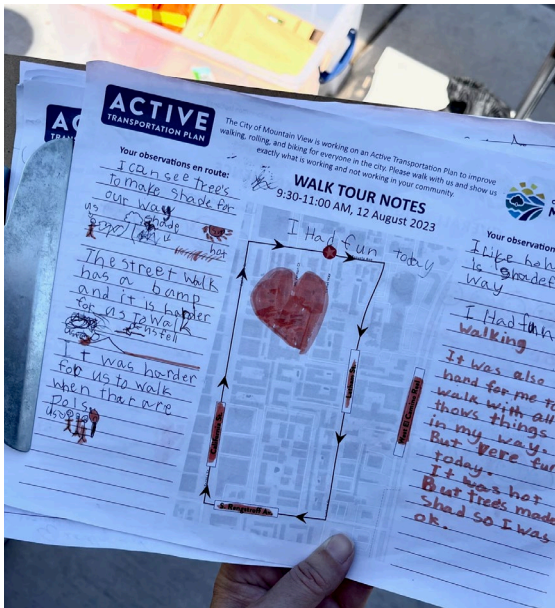 ACTIVE
TRANSPORTATION PLAN
The City of Mountain View is working on an Active Transportation Plan to improve
walking, rolling, and biking for everyone in the city. Please walk with us and show us
exactly what is working and not working in your community.
WALK TOUR NOTES
9:30-11:00 AM, 12 August 2023
Your observations en route:
I can see trees
to make shade for
our way
us
shade
hot
The street walk
has a bamp
and it is harder
for us to walk
us fell
It was harder
for us to walk
when that are
pols
us
I Had fun today
California St.
Latham St.
West El Camino Real
S. Rengstorff Av.
Your observation
I Like how
is shadef
way
I Had fun
walking
It was also
hard for me to
walk with all
thows things
in my way.
But Vere fun
today.
It was hot
But trees made
shad so I was
ok.